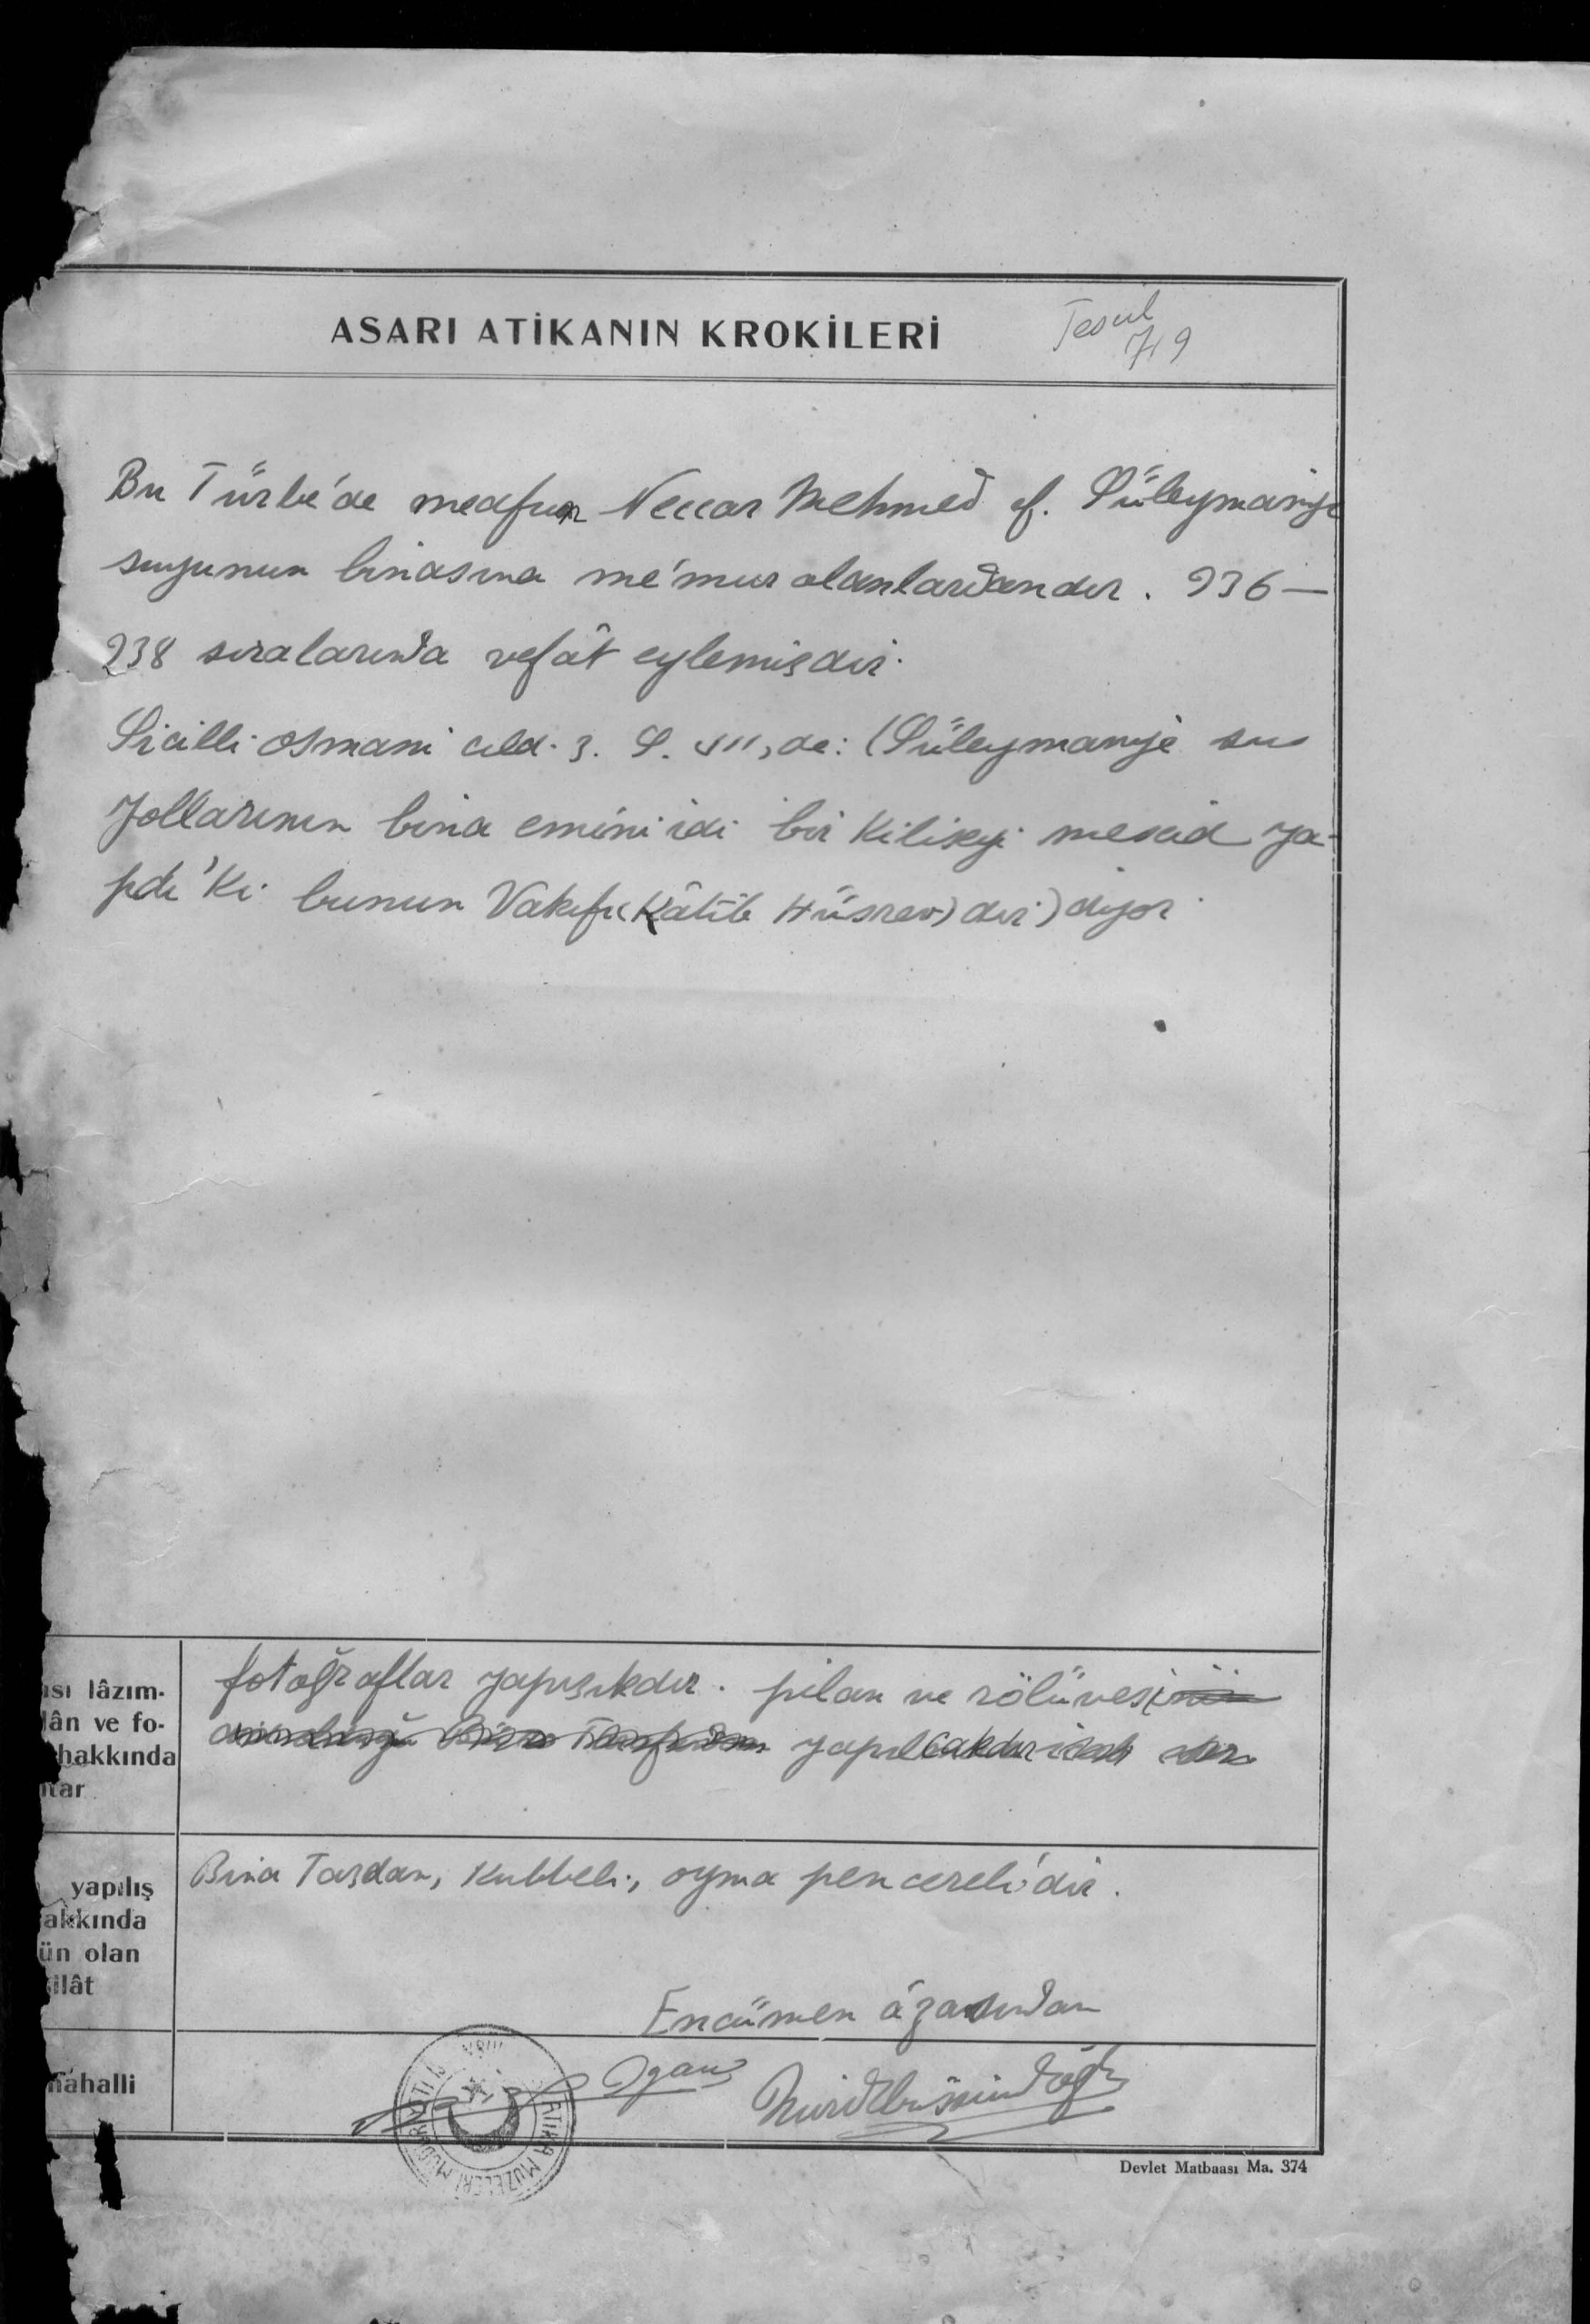 ASARI ATİKANIN KROKİLERİ
Tescil
719
Bu Türbe'de medfun Neccar Mehmed ef. Süleymaniye
suyunun binasına me'mur olanlardandır. 936 —
938 sıralarında vefât eylemişdir.
Sicilli osmani cild. 3. S. de: (Süleymaniye su
yollarının bina emini idi bir Kiliseyi mescid ya-
pdı'ki bunun Vakıfı (Kâtib Hüsrev) dir) diyor.
ısı lâzım-
lân ve fo-
hakkında
tar
fotoğraflar yapışıkdır. pilan ve rölüvesi
yapılcakdır
yapılış
akkında
ün olan
silât
Bina Taşdan, Kubbeli, oyma pencereli'dir.
Encümen âzasından
mahalli
Ogan
ATİKA MÜZELERİ MÜDÜRİYETİ
Devlet Matbaası Ma. 374